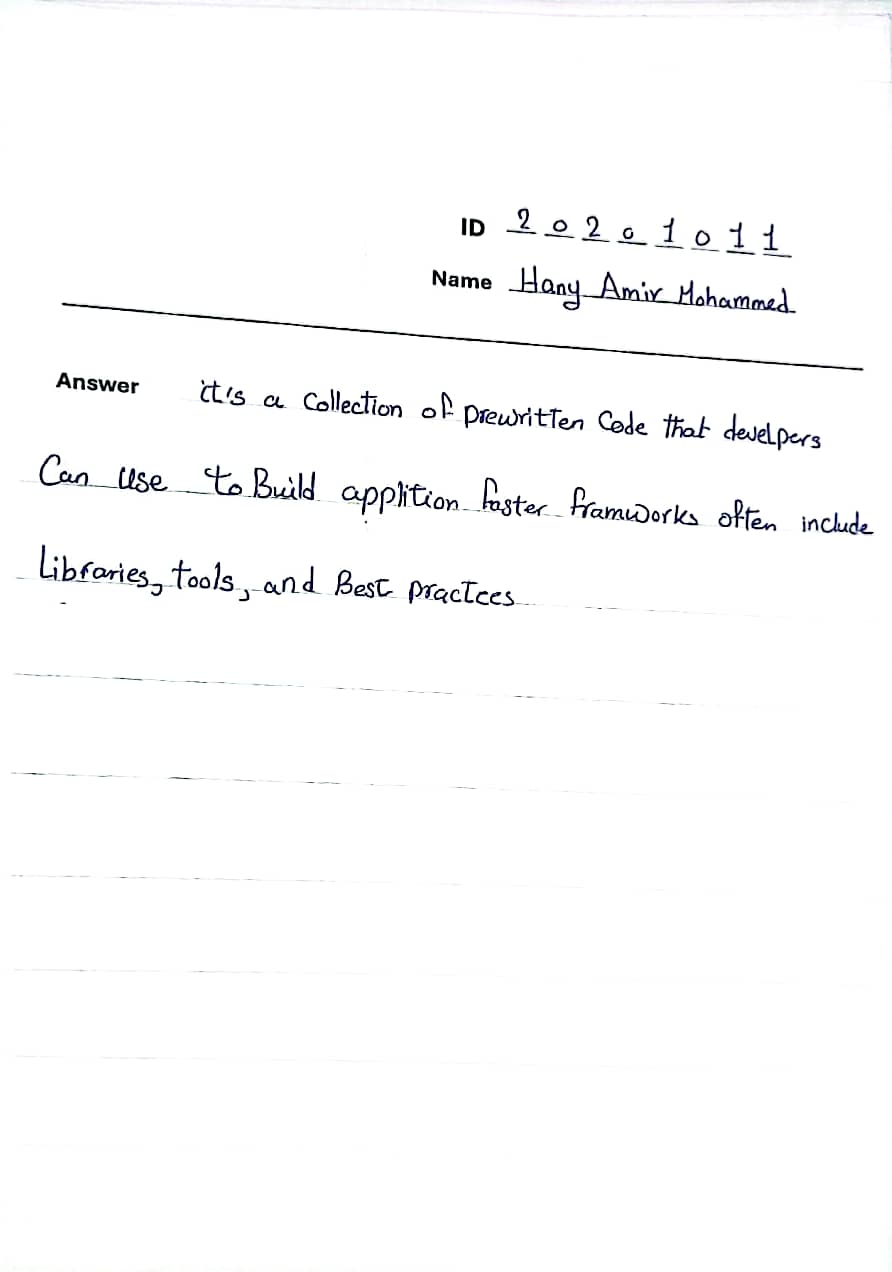 ID 20201011
Name Hany Amir Mohammed
Answer it's a Collection of prewritten Code that develpers
Can use to Build applition faster framworks often include
Libraries, tools, and Best practces